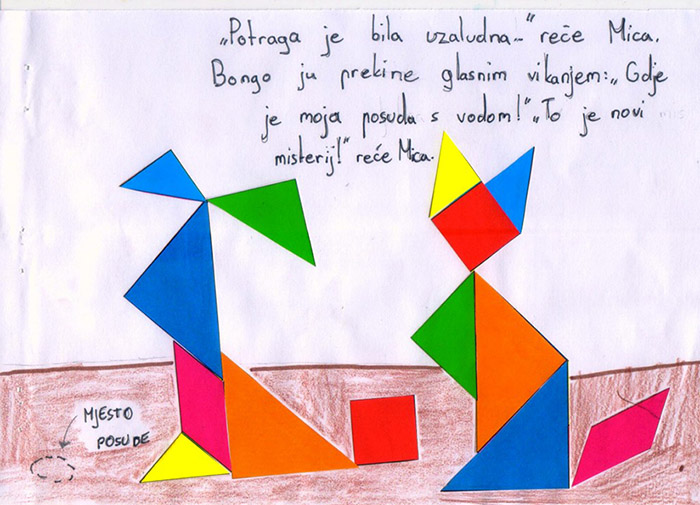 „Potraga je bila uzaludna..." reče Mica.
Bongo ju prekine glasnim vikanjem: „Gdje
je moja posuda s vodom!" „To je novi
misterij!" reče Mica.
MJESTO
POSUDE